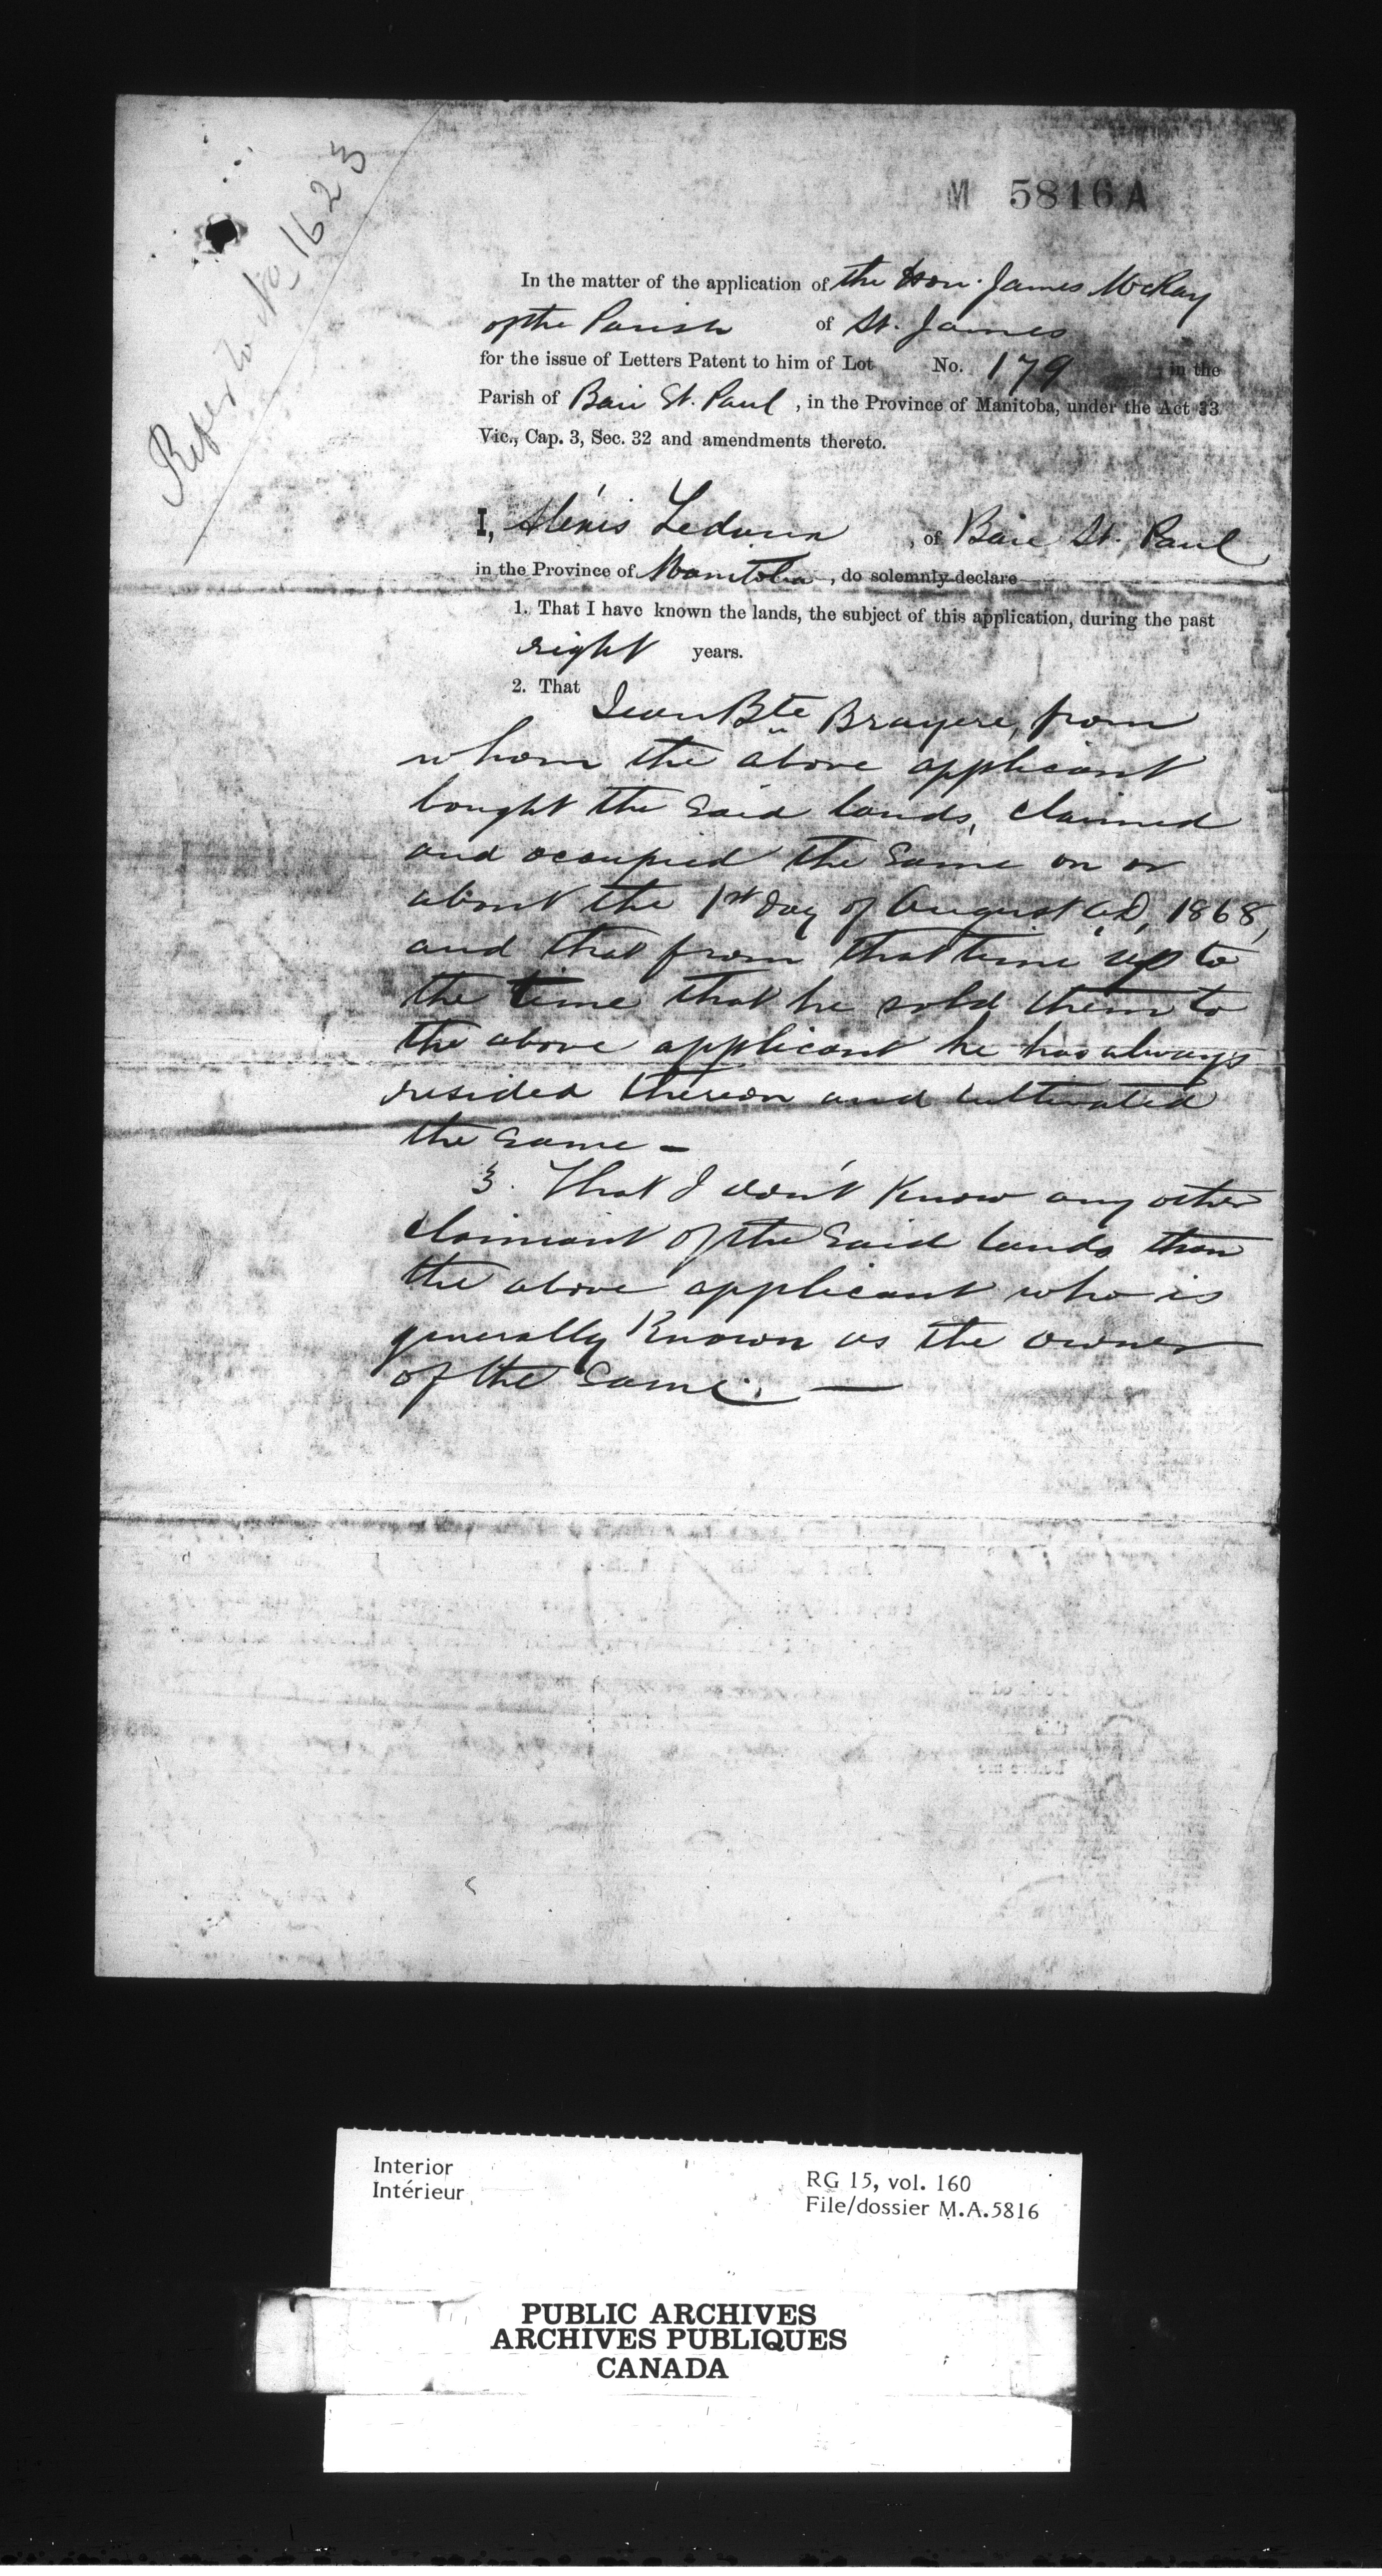 Refer to No 1623
M 5816 A
In the matter of the application of the Hon. James McKay
of the Parish of St. James
for the issue of Letters Patent to him of Lot No. 179 in the
Parish of Baie St. Paul, in the Province of Manitoba, under the Act 33
Vic., Cap. 3, Sec. 32 and amendments thereto.
I, Aléxis , of Baie St. Paul
in the Province of Manitoba, do solemnly declare
1. That I have known the lands, the subject of this application, during the past
eight years.
2. That
Jean Bte Bruyere, from
whom the above applicant
bought the said lands, claimed
and occupied the same on or
about the 1st day of August A.D. 1868,
and that from that time up to
the time that he sold them to
the above applicant he has always
resided thereon and cultivated
the same -
3. That I don't Know any other
claimant of the said lands than
the above applicant who is
generally Known as the owner
of the same. —
Interior
Intérieur
RG 15, vol. 160
File/dossier M.A.5816
PUBLIC ARCHIVES
ARCHIVES PUBLIQUES
CANADA